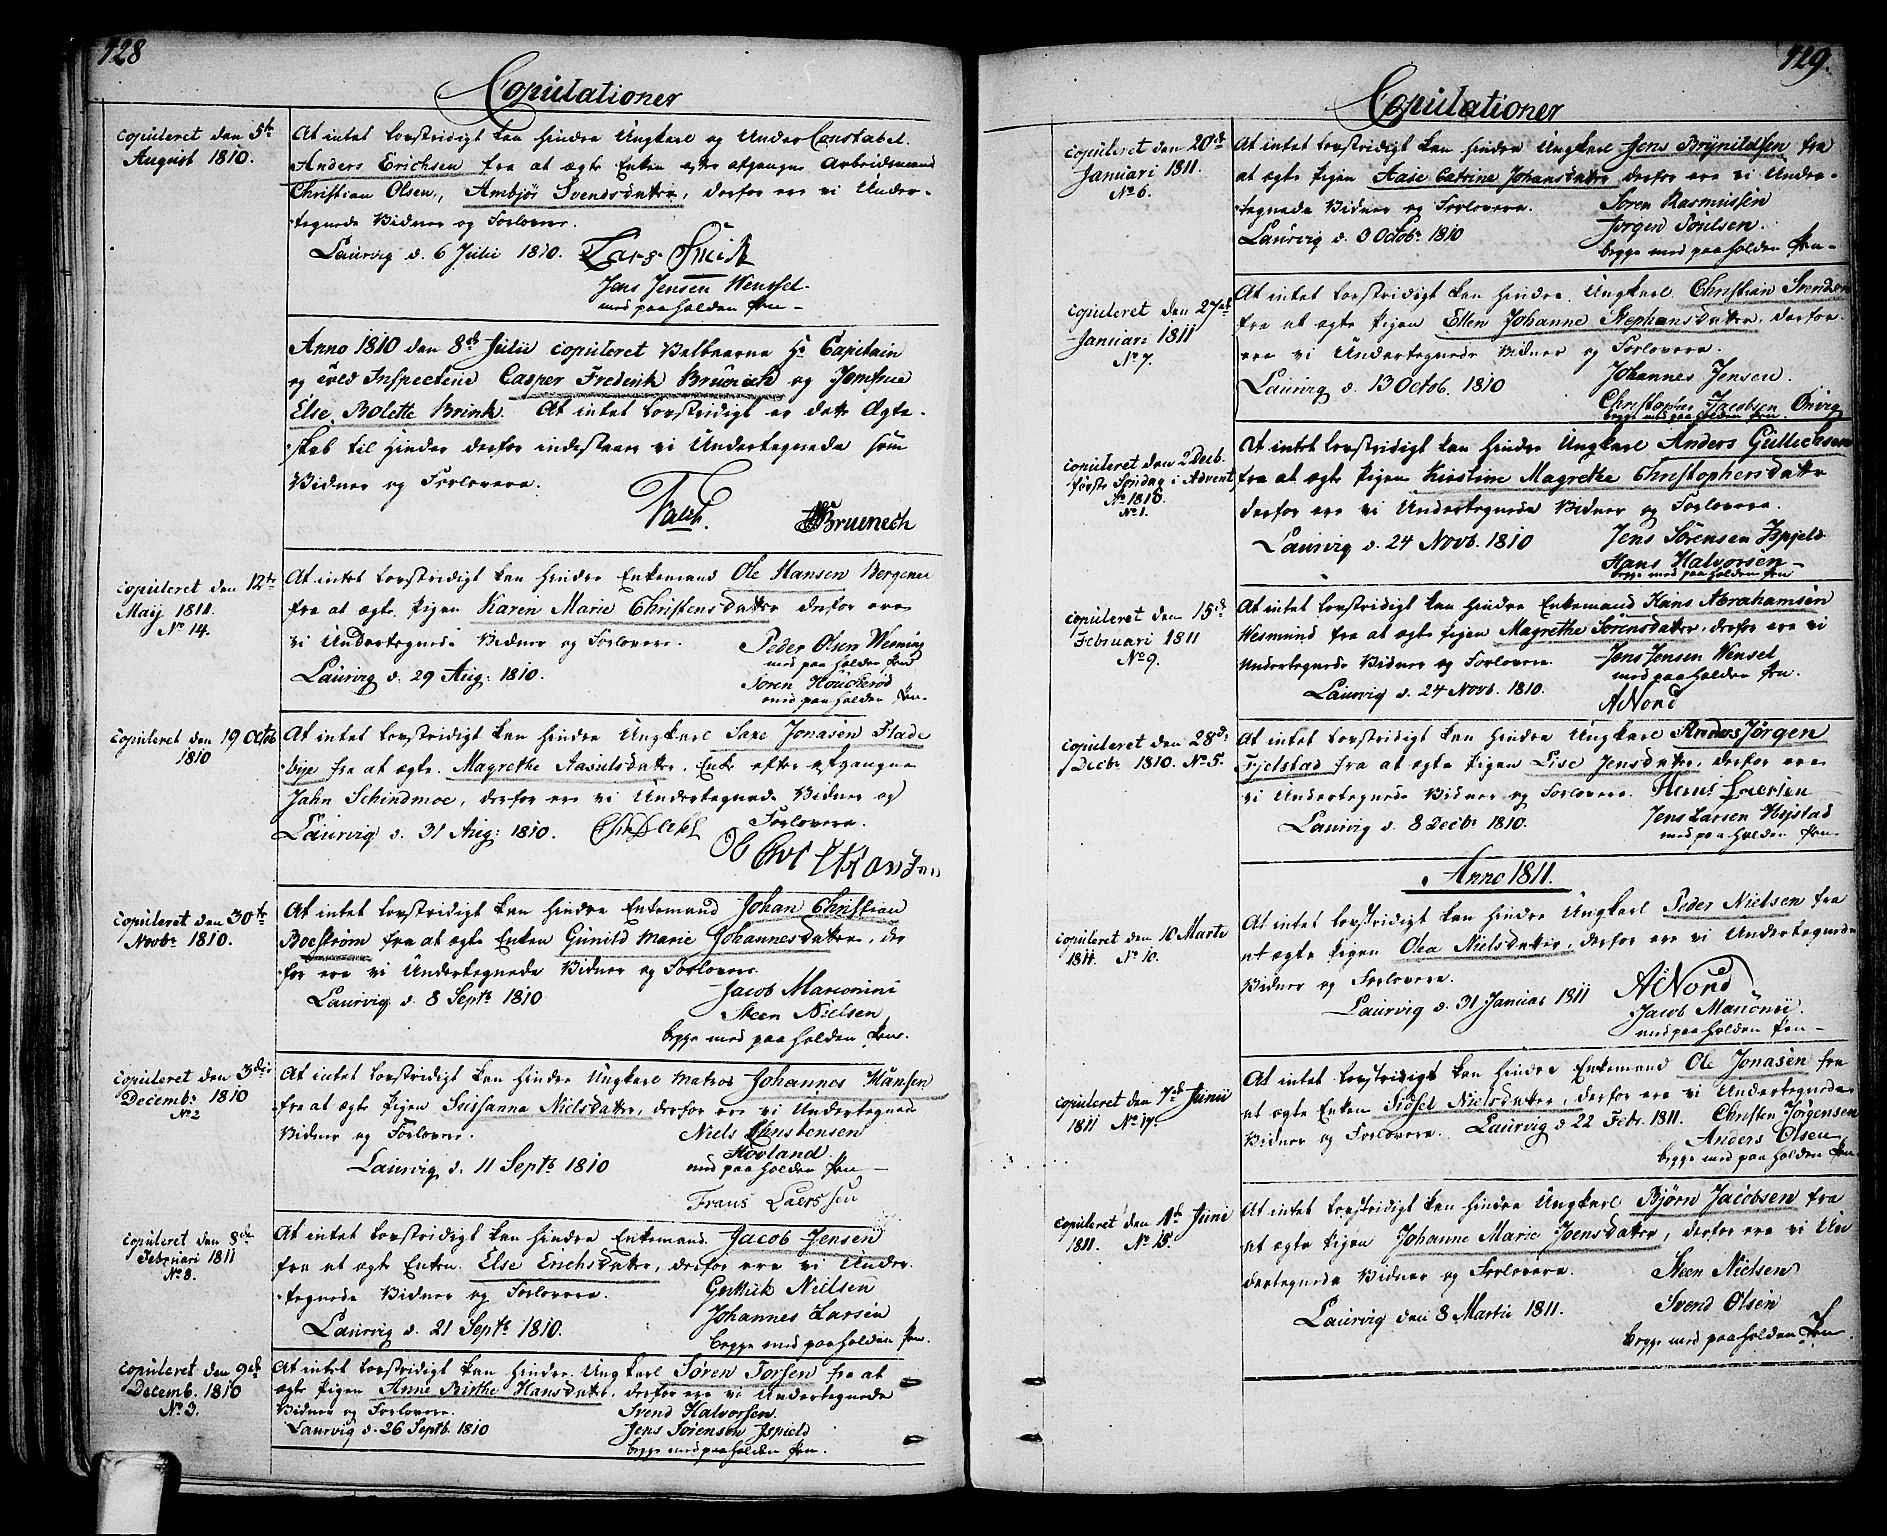 128
Copulationer
copuleret den 5te
August 1810.
At intet lovstridigt kan hindre Ungkarl og Under Constabel
Anders Erichsen fra at ægte Enken efter afgangne Arbeidsmand
Christian Olsen, Ambjør Svendsdatter, derfor ere vi Under-
tegnede Vidner og Forlovere.
Laurvig d. 6 Julii 1810.
Jens Jensen Wensel.
med paaholden Pen
Anno 1810 den 8de Julii copuleret Velbaarne Hr Capitain
og Inspecteur Casper Frederik Brunich og Jomfrue
Else Bolette Brink. At intet lovstridigt er dette Ægte-
skab til Hinder derfor indestaar vi Undertegnede som
Vidner og Forlovere.
Falch. Bruenech
copuleret den 12te
Maij 1811.
No 14.
At intet lovstridigt kan hindre Enkemand Ole Hansen Bergene
fra at ægte Pigen Karen Marie Christensdatter derfor ere
vi Undertegnede Vidner og Forlovere.
Laurvig d. 29 Aug: 1810.
Peder Olsen
med paaholden Pen
Soren
med paaholden Pen.
copuleret den 19 Octob
1810
At intet lovstridigt kan hindre Ungkarl Saxe Jonasen Flade
bye fra at ægte Magrethe Aasulsdatter, Enke efter afgangne
Jahn Schindmoe, derfor ere vi Undertegnede Vidner og
Forlovere.
Laurvig d. 31 Aug: 1810.
copuleret den 30te
Novbr 1810.
At intet lovstridigt kan hindre Enkemand Johan Christian
Boestrøm fra at ægte Enken Gunild Marie Johannesdatter, der
for ere vi Undertegnede Vidner og Forlovere.
Laurvig d. 8 Septb 1810
Jacob Marconini
Steen Nielsen
begge med paaholden Pen.
copuleret den 3die
Decembr 1810
No 2
At intet lovstridigt kan hindre Ungkarl Matros Johannes Hansen
fra at ægte Pigen Susanna Nielsdatter, derfor ere vi Undertegnede
Vidner og Forlovere.
Niels Christensen
Hovland.
Laurvig d. 11 Septb 1810
med paaholden Pen
Frans Laerssen
copuleret den 8de
Februari 1811
No 8.
At intet lovstridigt kan hindre Enkemand Jacob Jensen
fra at ægte Enken Else Erichsdatter, derfor ere vi Under-
tegnede Vidner og Forlovere.
Gulliik Nielsen
Johannes Larsen
Laurvig d. 21 Septb 1810.
begge med paaholden Pen.
copuleret den 9de
Decemb. 1810
No 3.
At intet lovstridigt kan hindre Ungkarl Søren Torsen fra at
ægte Pigen Anne Birthe Hansdatter, derfor ere vi Undertegnede
Vidner og Forlovere.
Svend Halvorsen.
Laurvig d. 26 Septb 1810
Jens Sørensen Ispield
begge med paaholden Pen.
129.
Copulationer
copuleret den 20de
Januari 1811.
No 6.
At intet lovstridigt kan hindre Ungkarl Jens Brynildsen fra
at ægte Pigen Aase Catrine Johansdatter derfor ere vi Under-
tegnede Vidner og Forlovere.
Soren Rasmussen
Laurvig d. 3 Octobr 1810
Jørgen Poulsen.
begge med paaholden Pen
copuleret den 27de
Januari 1811
No 7.
At intet lovstridigt kan hindre Ungkarl Christian Svendsen
fra at ægte Pigen Ellen Johanne Stephansdatter, derfor
ere vi Undertegnede Vidner og Forlovere.
Laurvig d. 13 Octob. 1810
Johannes Jensen.
Christopher Jacobsen
begge med paaholden Pen.
copuleret den 2 Decb.
første Søndag i Advent
Ao 1810.
No 1.
At intet lovstridigt kan hindre Ungkarl Anders Gullichsen
fra at ægte Pigen Kirstine Magrethe Christophersdatter
derfor ere vi Undertegnede Vidner og Forlovere.
Laurvig d. 24 Novb. 1810
Jens Sørensen Ispield
Hans Halvorsen
begge med paaholden Pen
copuleret den 15de
Februari 1811
No 9.
At intet lovstridigt kan hindre Enkemand Hans Abrahamsen
Wesmund fra at ægte Pigen Magrethe Sorensdatter, derfor ere vi
Undertegnede Vidner og Forlovere.
Jens Jensen Wensel
med paaholden Pen.
Laurvig d. 24 Novb. 1810.
A Nord
copuleret den 28de
Decbr 1810. No 5.
At intet lovstridigt kan hindre Ungkarl Anders Jørgen
Fjelstad fra at ægte Pigen Lise Jensdatter, derfor ere
vi Undertegnede Vidner og Forlovere. Hans Laersen
Laurvig d. 8 Decbr 1810.
Jens Larsen
med paaholden Pen
Anno 1811.
copuleret den 10 Marti
1811. No 10.
At intet lovstridigt kan hindre Ungkarl Peder Nielsen fra
at ægte Pigen Olea Nielsdatter, derfor ere vi Undertegnede
Vidner og Forlovere.
Laurvig d. 31 Januar 1811
A Nord
Jacob Marconii.
med paaholden Pen
copuleret den 7de Junii
1811 No 17.
At intet lovstridigt kan hindre Enkemand Ole Jonasen fra
at ægte Enken Sidsel Nielsdatter, derfor ere vi Undertegnede
Vidner og Forlovere. Laurvig d 22 Febr. 1811. Christen Jørgensen
Anders Olsen
begge med paaholden Pen
copuleret den 1de Juni
1811. No 15.
At intet lovstridigt kan hindre Ungkarl Bjørn Jacobsen fra
at ægte Pigen Johanne Marie Joensdatter, derfor ere vi Un
dertegnede Vidner og Forlovere.
Steen Nielsen
Svend Olsen
Laurvig den 8 Martii 1811.
begge med paaholden Pen.